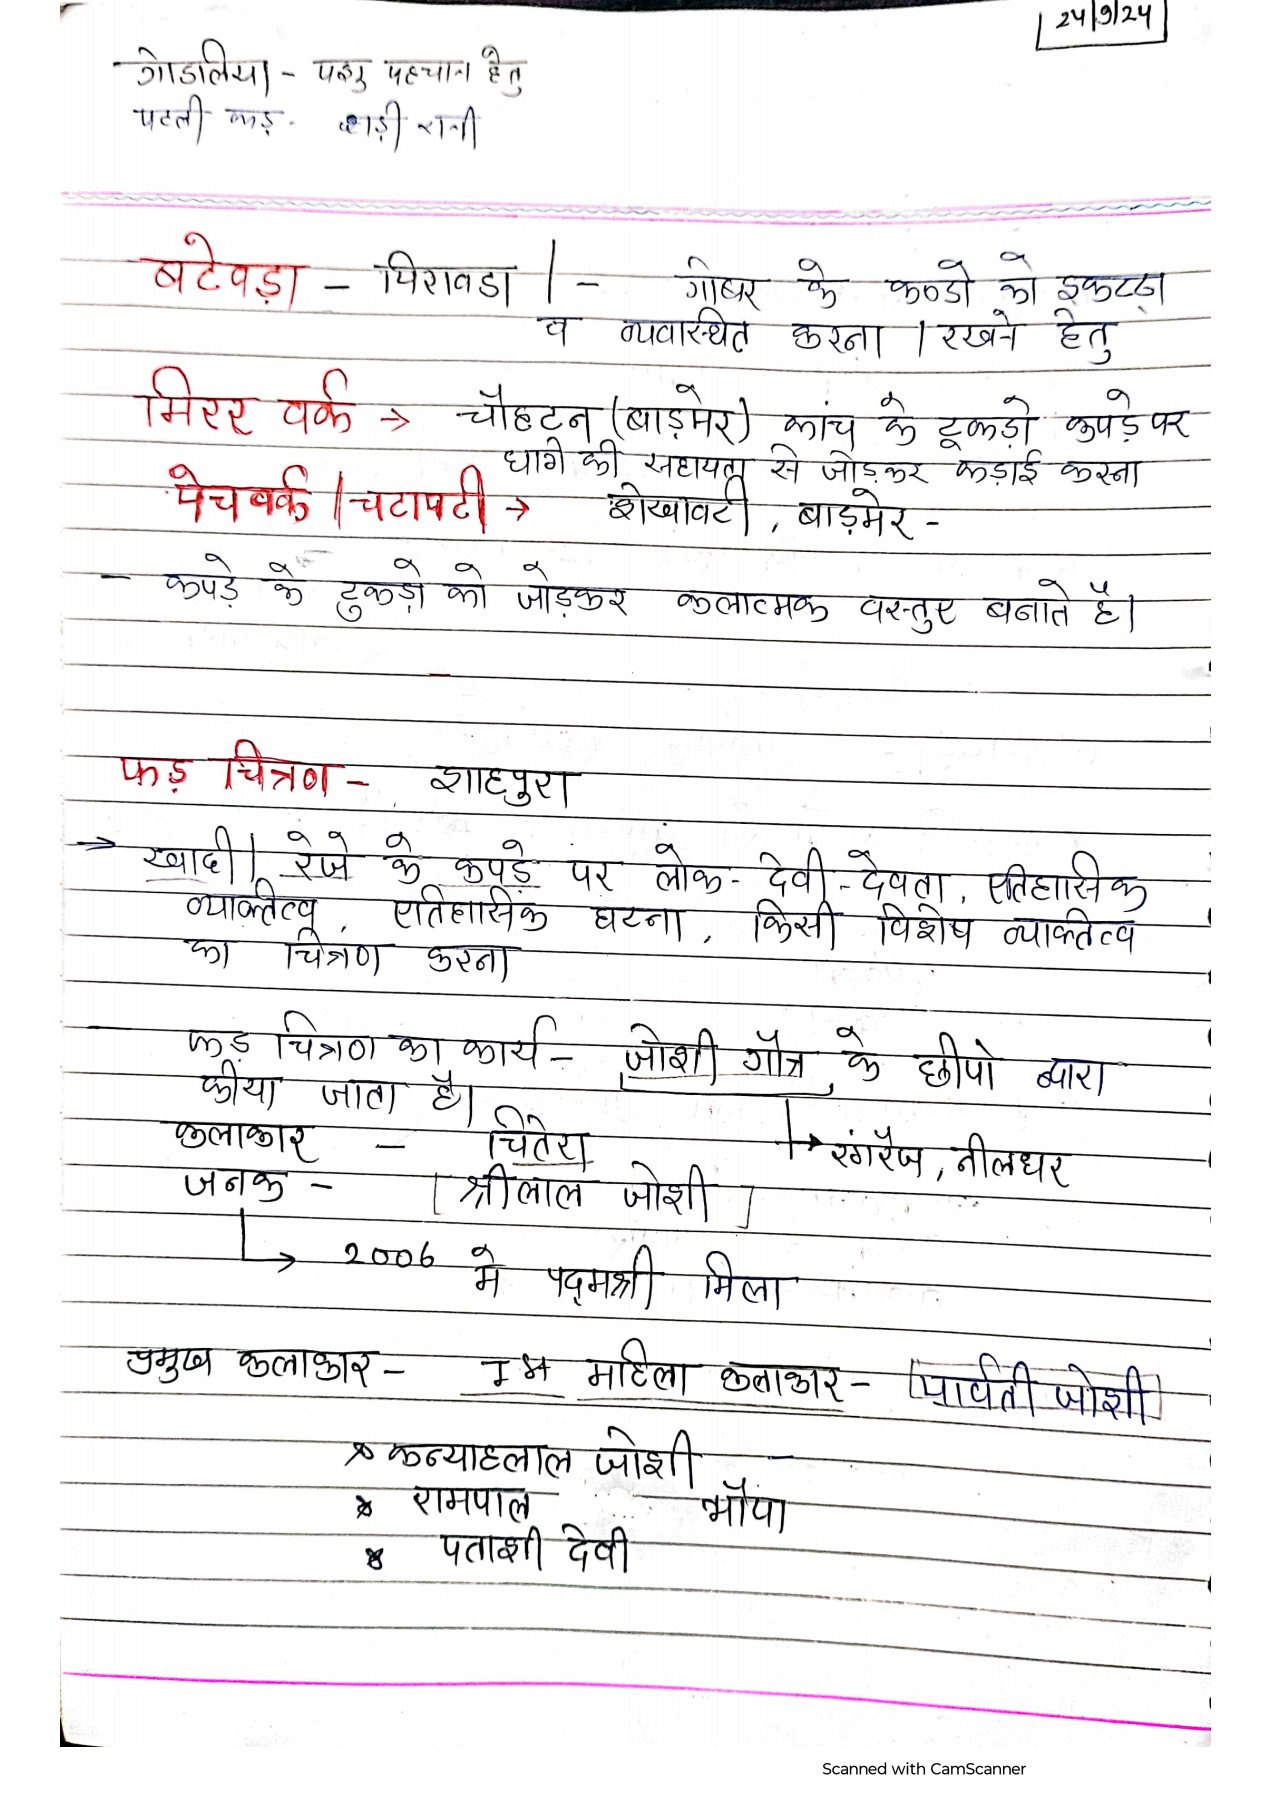 24/9/24
गोडलिया - पशु पहचान हेतु
पटली कड़ - हाड़ी रानी
बटेवड़ा - पिरावडा | - गोबर के कण्डो को इकट्ठा
व व्यवस्थित करना / रखने हेतु
मिरर वर्क → चौहटन (बाड़मेर) कांच के टूकड़ो कपड़े पर
धागे की सहायता से जोड़कर कड़ाई करना
पेचवर्क / चटापटी → शेखावटी, बाड़मेर -
- कपड़े के टुकड़ो को जोड़कर कलात्मक वस्तुए बनाते है।
फड़ चित्रण - शाहपुरा
→ खादी / रेजे के कपड़े पर लोक - देवी - देवता, एतिहासिक
व्यक्तित्व, एतिहासिक घटना, किसी विशेष व्यक्तित्व
का चित्रण करना
फड़ चित्रण का कार्य - जोशी गौत्र के छीपो द्वारा
कीया जाता है।
कलाकार - चितेरा → रंगरेज, नीलघर
जनक - [श्रीलाल जोशी]
→ 2006 मे पद्मश्री मिला
प्रमुख कलाकार - Ist महिला कलाकार - [पार्वती जोशी]
* कन्याहलाल जोशी
* रामपाल भौपा
* पताशी देवी
Scanned with CamScanner